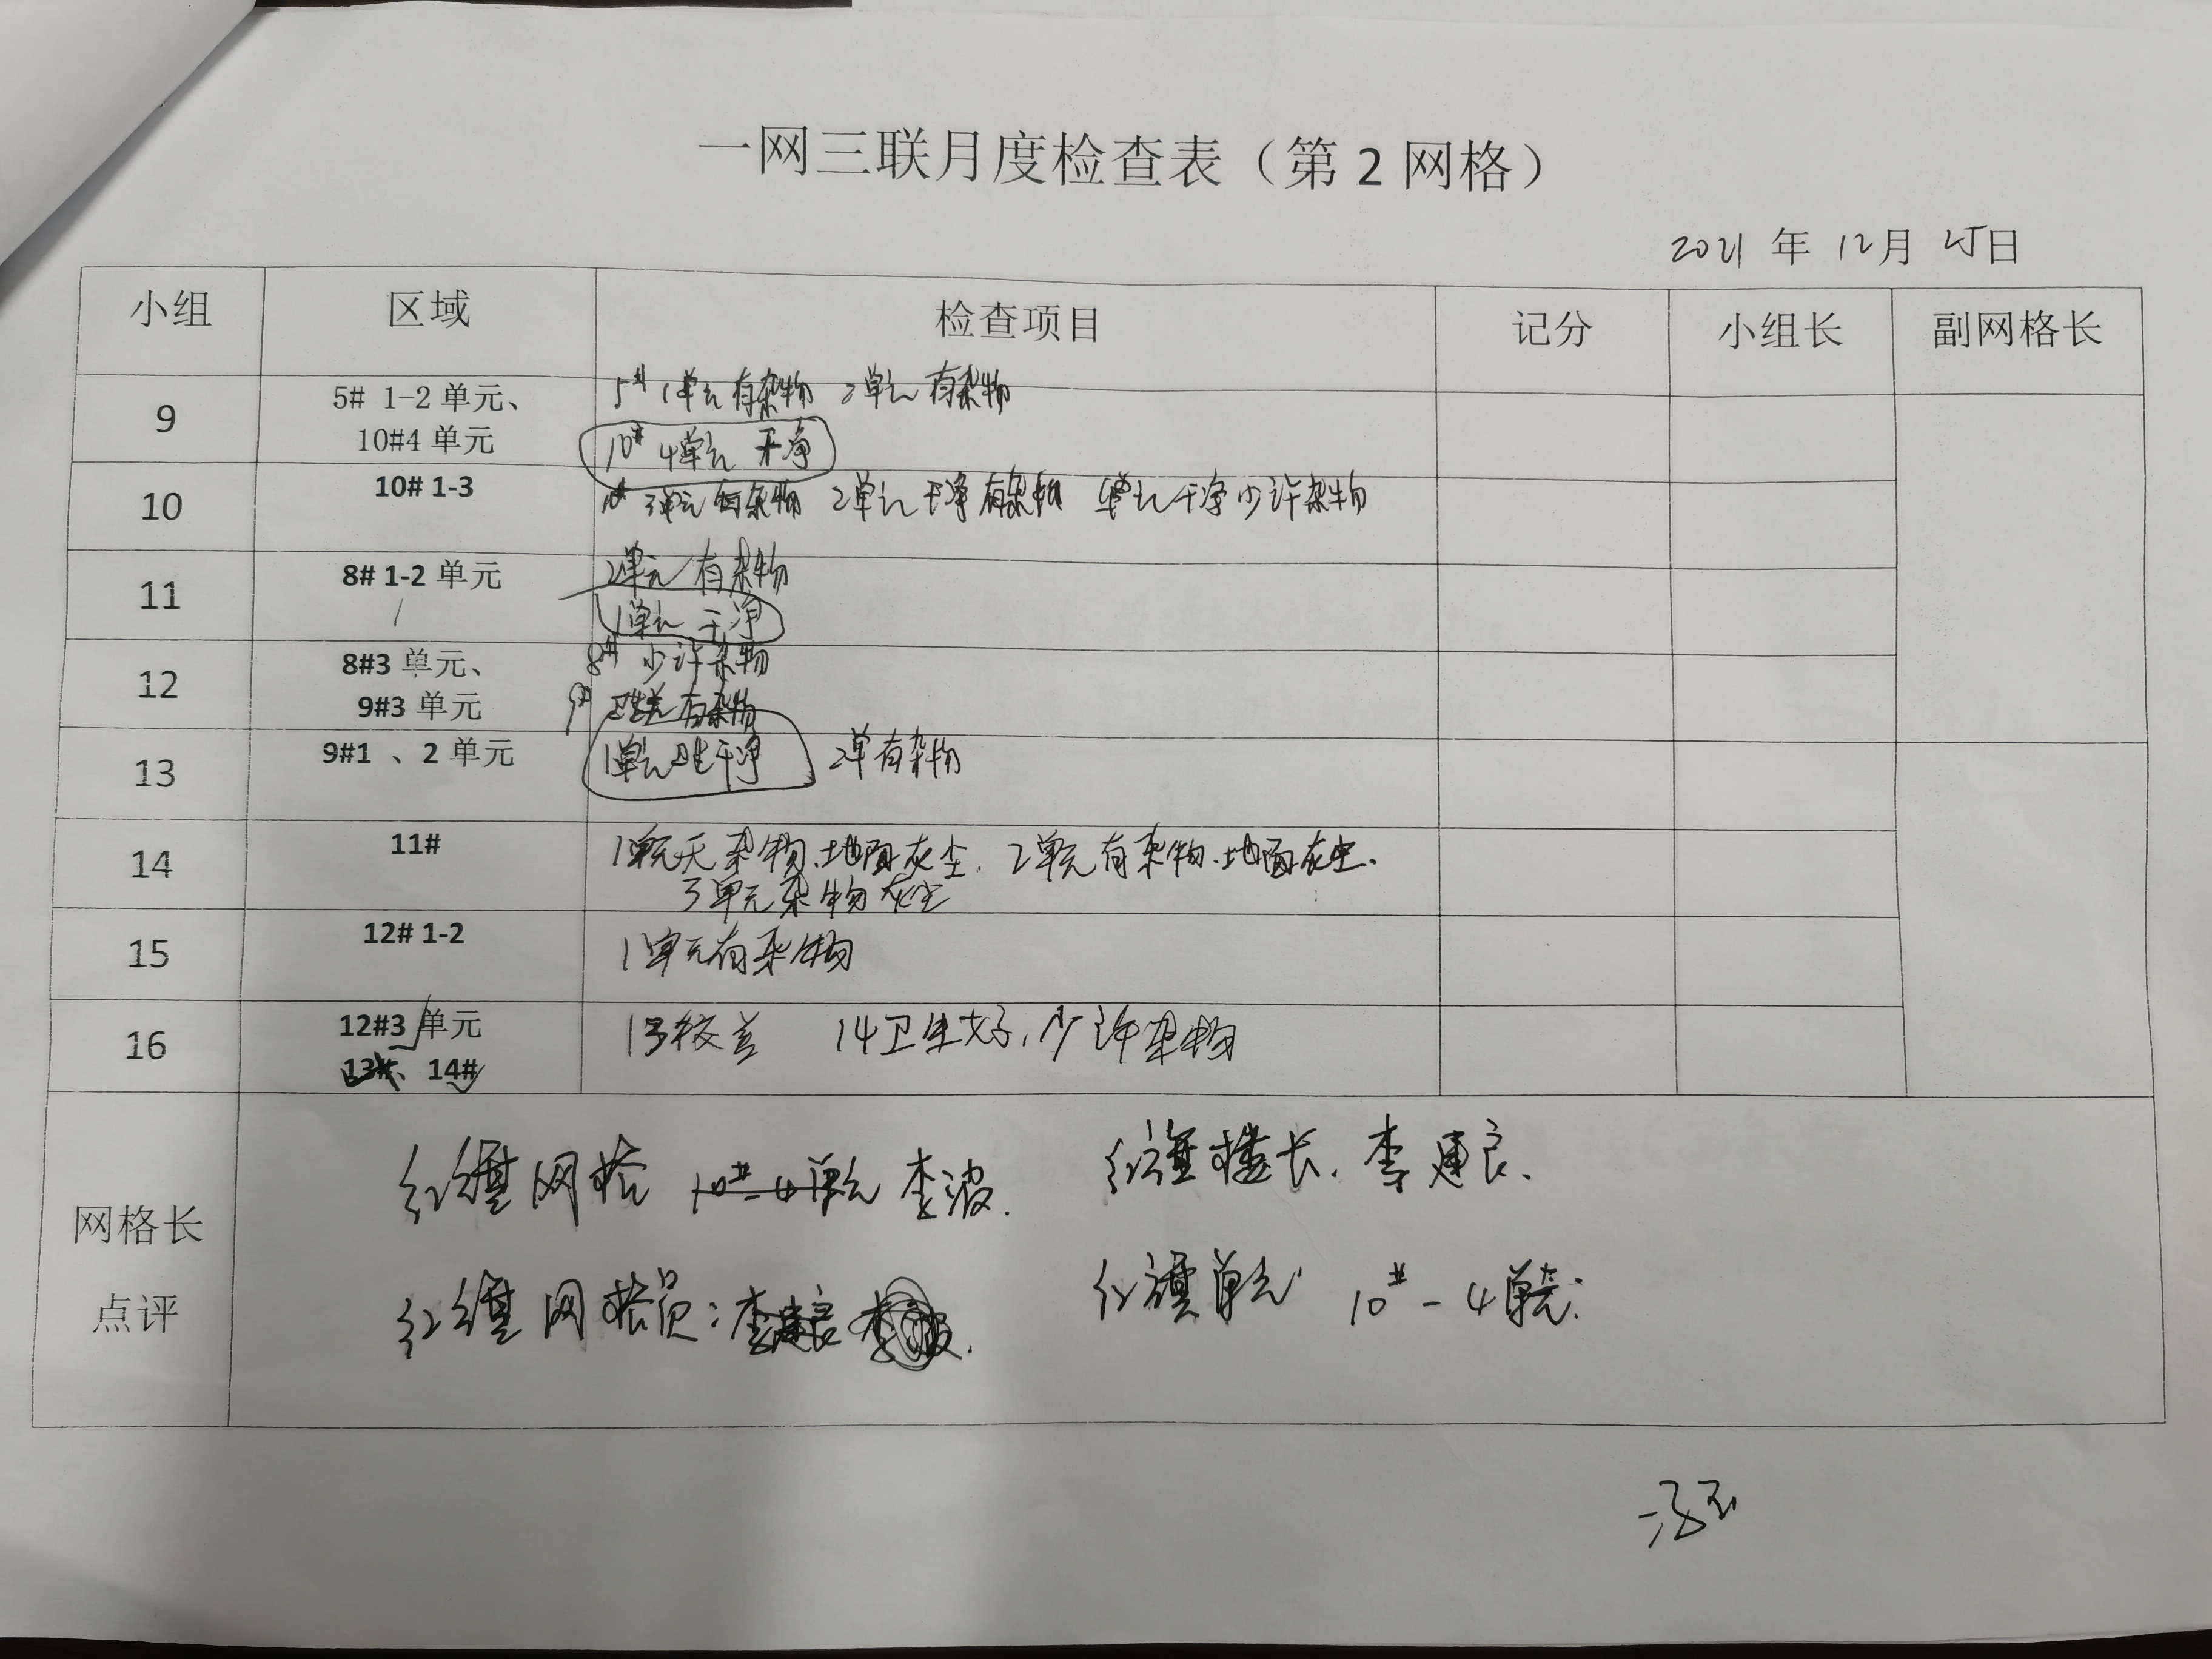 一网三联月度检查表（第 2 网格）
2021 年 12月 25日
小组 区域 检查项目 记分 小组长 副网格长
9 5# 1-2 单元、 5# 1单元有杂物 2单元 有杂物
10#4 单元 10# 4单元 干净
10 10# 1-3 10# 3单元 有杂物 2单元干净 有杂物 单元干净 少许杂物
11 8# 1-2 单元 2单元 有杂物
1单元 干净
12 8#3 单元、 8# 少许杂物
9#3 单元 9# 卫生差 有杂物
13 9#1 、2 单元 1单元卫生干净 2单有杂物
14 11# 1单元无杂物、地面灰尘. 2单元有杂物、地面灰尘.
3单元杂物灰尘
15 12# 1-2 1单元有杂物
16 12#3 单元 13较差 14卫生好, 少许杂物
13#、 14#
网格长
点评
红旗网格 10#-4单元 李波. 红旗楼长. 李建良.
红旗网格员: 李建良 李. 红旗单元 10#-4单元.